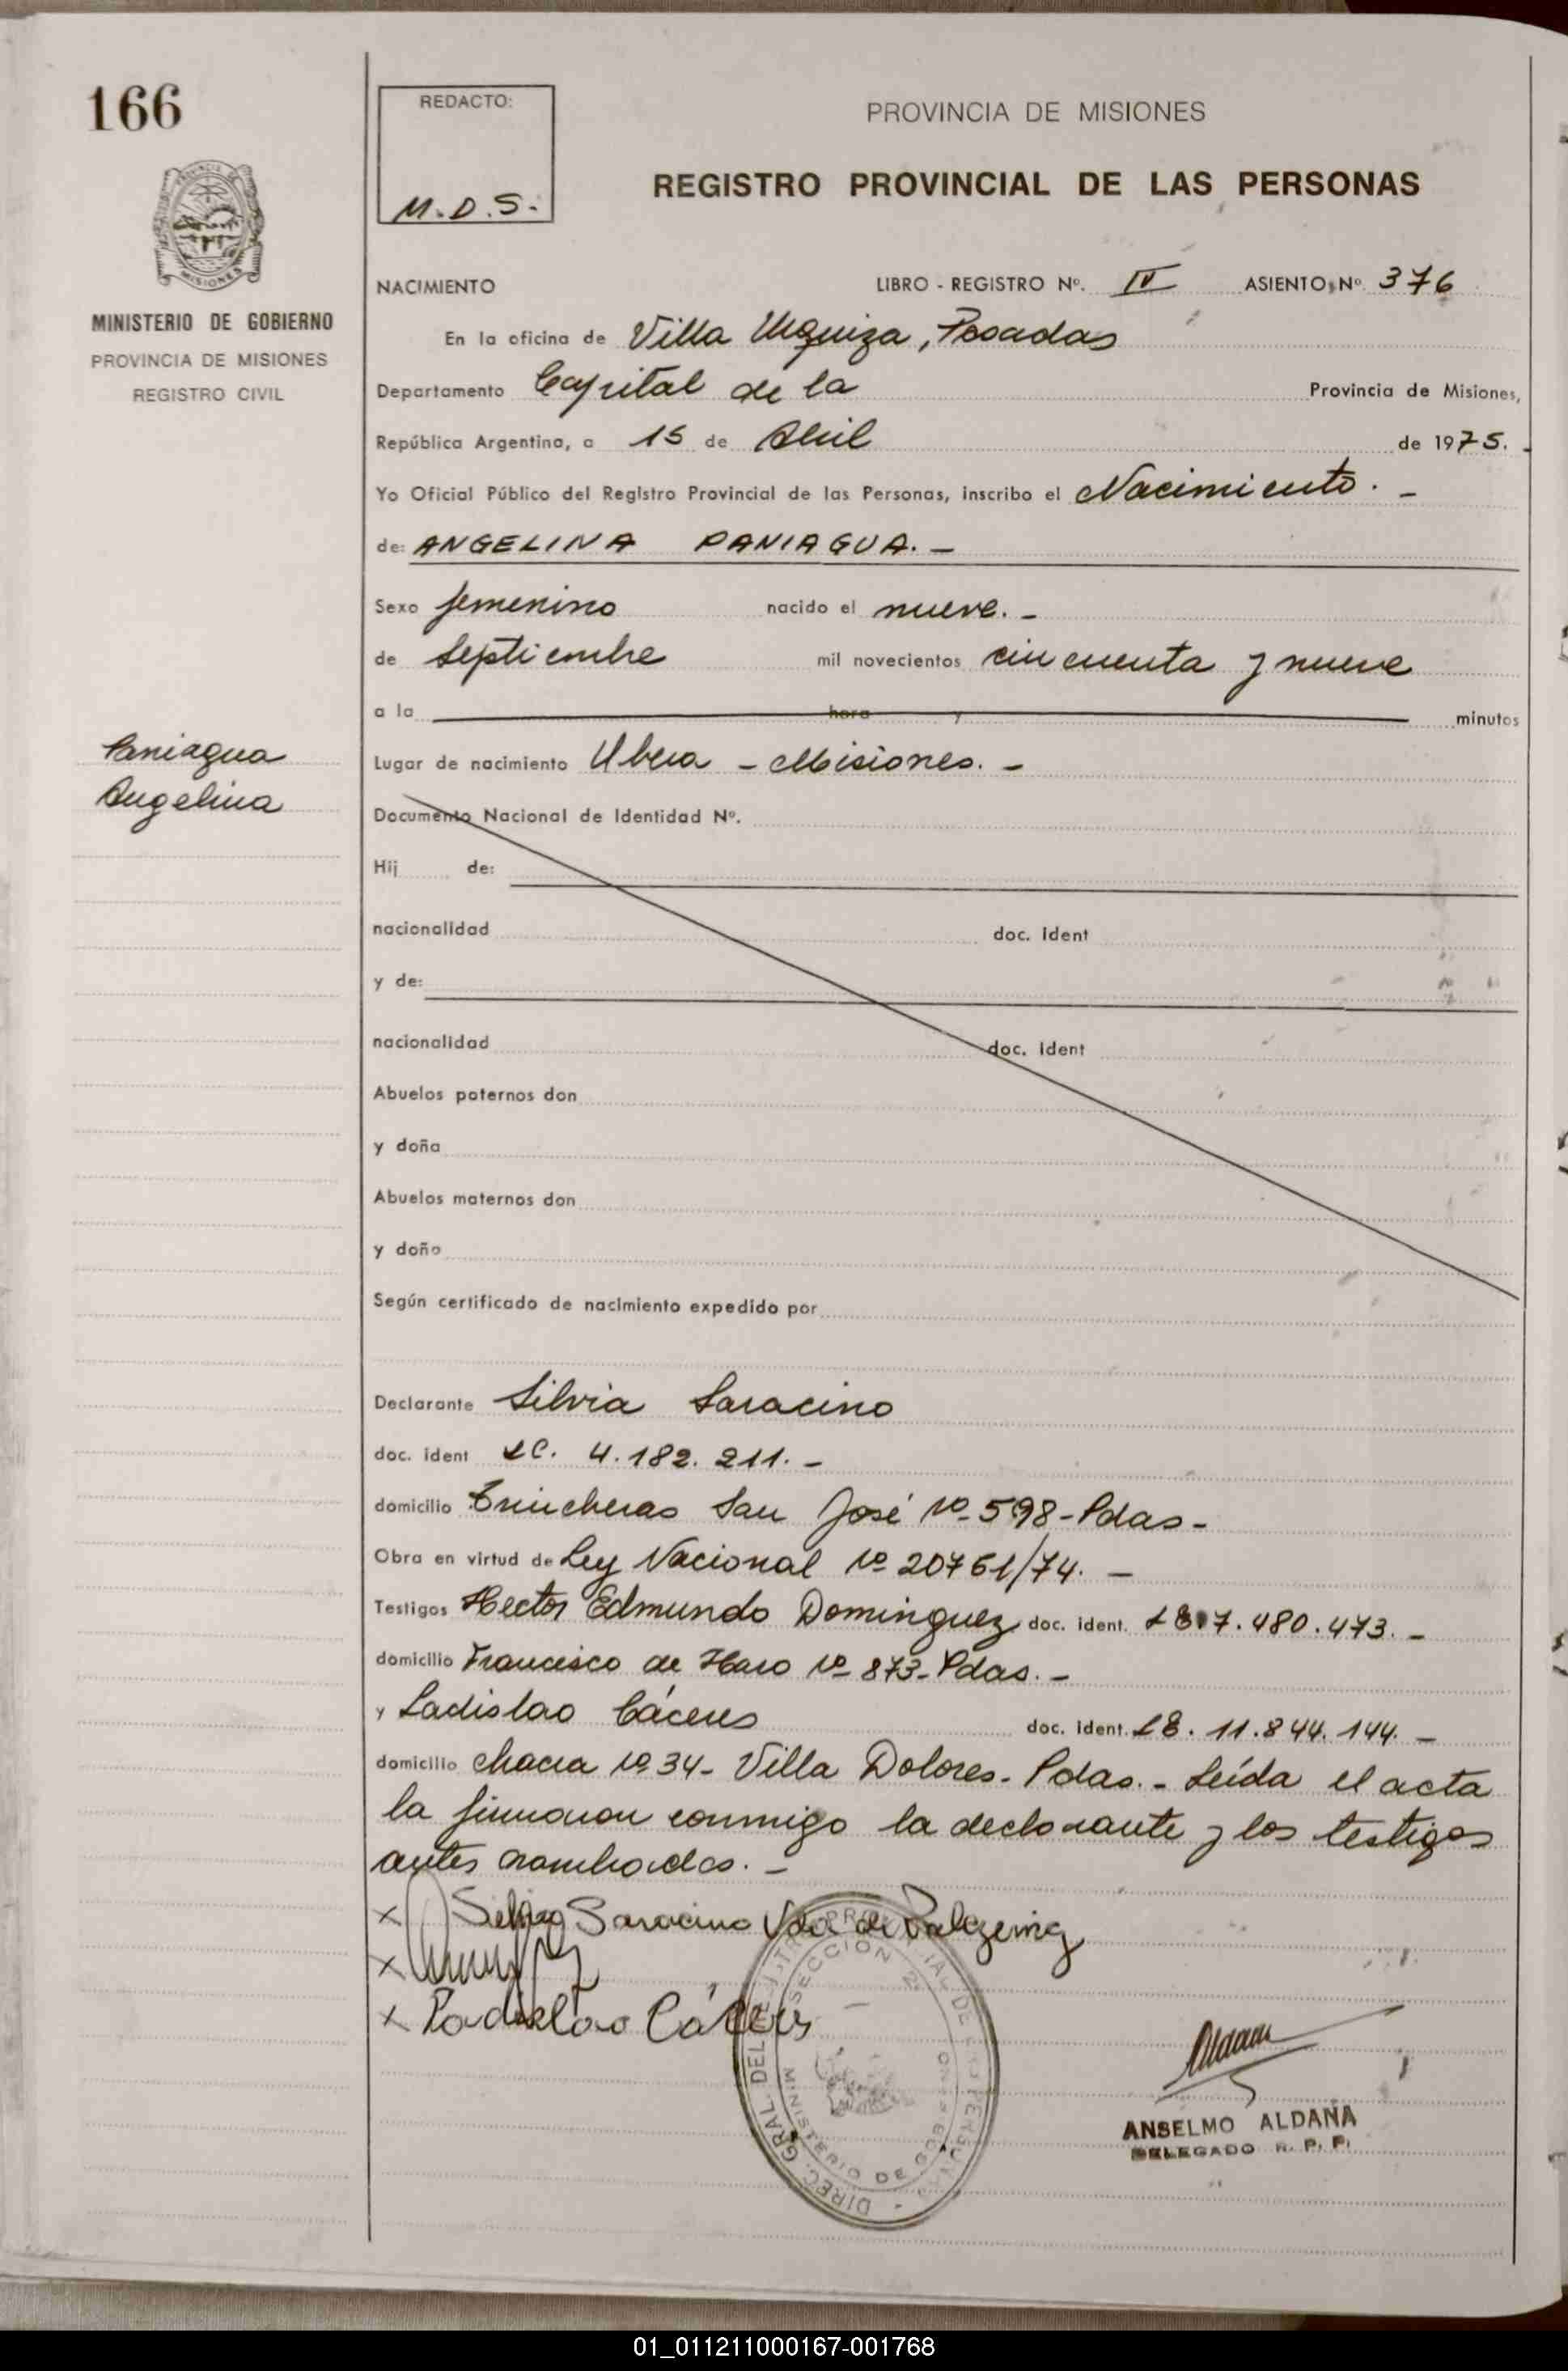 166
REDACTO:
M.D.S.
PROVINCIA DE MISIONES
REGISTRO PROVINCIAL DE LAS PERSONAS
MISIONES
MINISTERIO DE GOBIERNO
PROVINCIA DE MISIONES
REGISTRO CIVIL
NACIMIENTO LIBRO - REGISTRO Nº. IV ASIENTO Nº 376
En la oficina de Villa Urquiza, Posadas
Departamento Capital de la Provincia de Misiones,
República Argentina, a 15 de Abril de 1975.
Yo Oficial Público del Registro Provincial de las Personas, inscribo el Nacimiento. -
de: ANGELINA PANIAGUA. -
Sexo femenino nacido el nueve. -
de septiembre mil novecientos cincuenta y nueve
a la hora y minutos
Paniagua
Angelina
Lugar de nacimiento Obera - Misiones. -
Documento Nacional de Identidad Nº.
Hij de:
nacionalidad doc. ident
y de:
nacionalidad doc. ident
Abuelos paternos don
y doña
Abuelos maternos don
y doña
Según certificado de nacimiento expedido por
Declarante Silvia Saracino
doc. ident LC. 4.182.211. -
domicilio Trincheras San José Nº 598 - Pdas -
Obra en virtud de Ley Nacional Nº 20761/74. -
Testigos Hector Edmundo Dominguez doc. ident. 7.480.473. -
domicilio Francisco de Haro Nº 873 - Pdas. -
y Ladislao Cáceres doc. ident. LE. 11.844.144. -
domicilio Chacra Nº 34 - Villa Dolores - Pdas. - Leída el acta
la firmaron conmigo la declarante y los testigos
antes nombrados. -
x Silvia Saracino Vda de
x
x Ladislao Cáceres
DIREC. GRAL. DEL REGISTRO PROVINCIAL DE LAS PERSONAS
SECCION 2ª
MINISTERIO DE GOBIERNO
ANSELMO ALDAÑA
DELEGADO R. P. P.
01_011211000167-001768